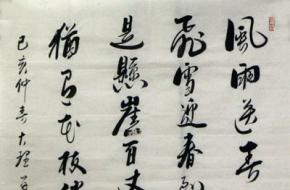 風雨送春
飛雪迎春到
是懸崖百丈
猶有花枝俏
己亥仲春大理